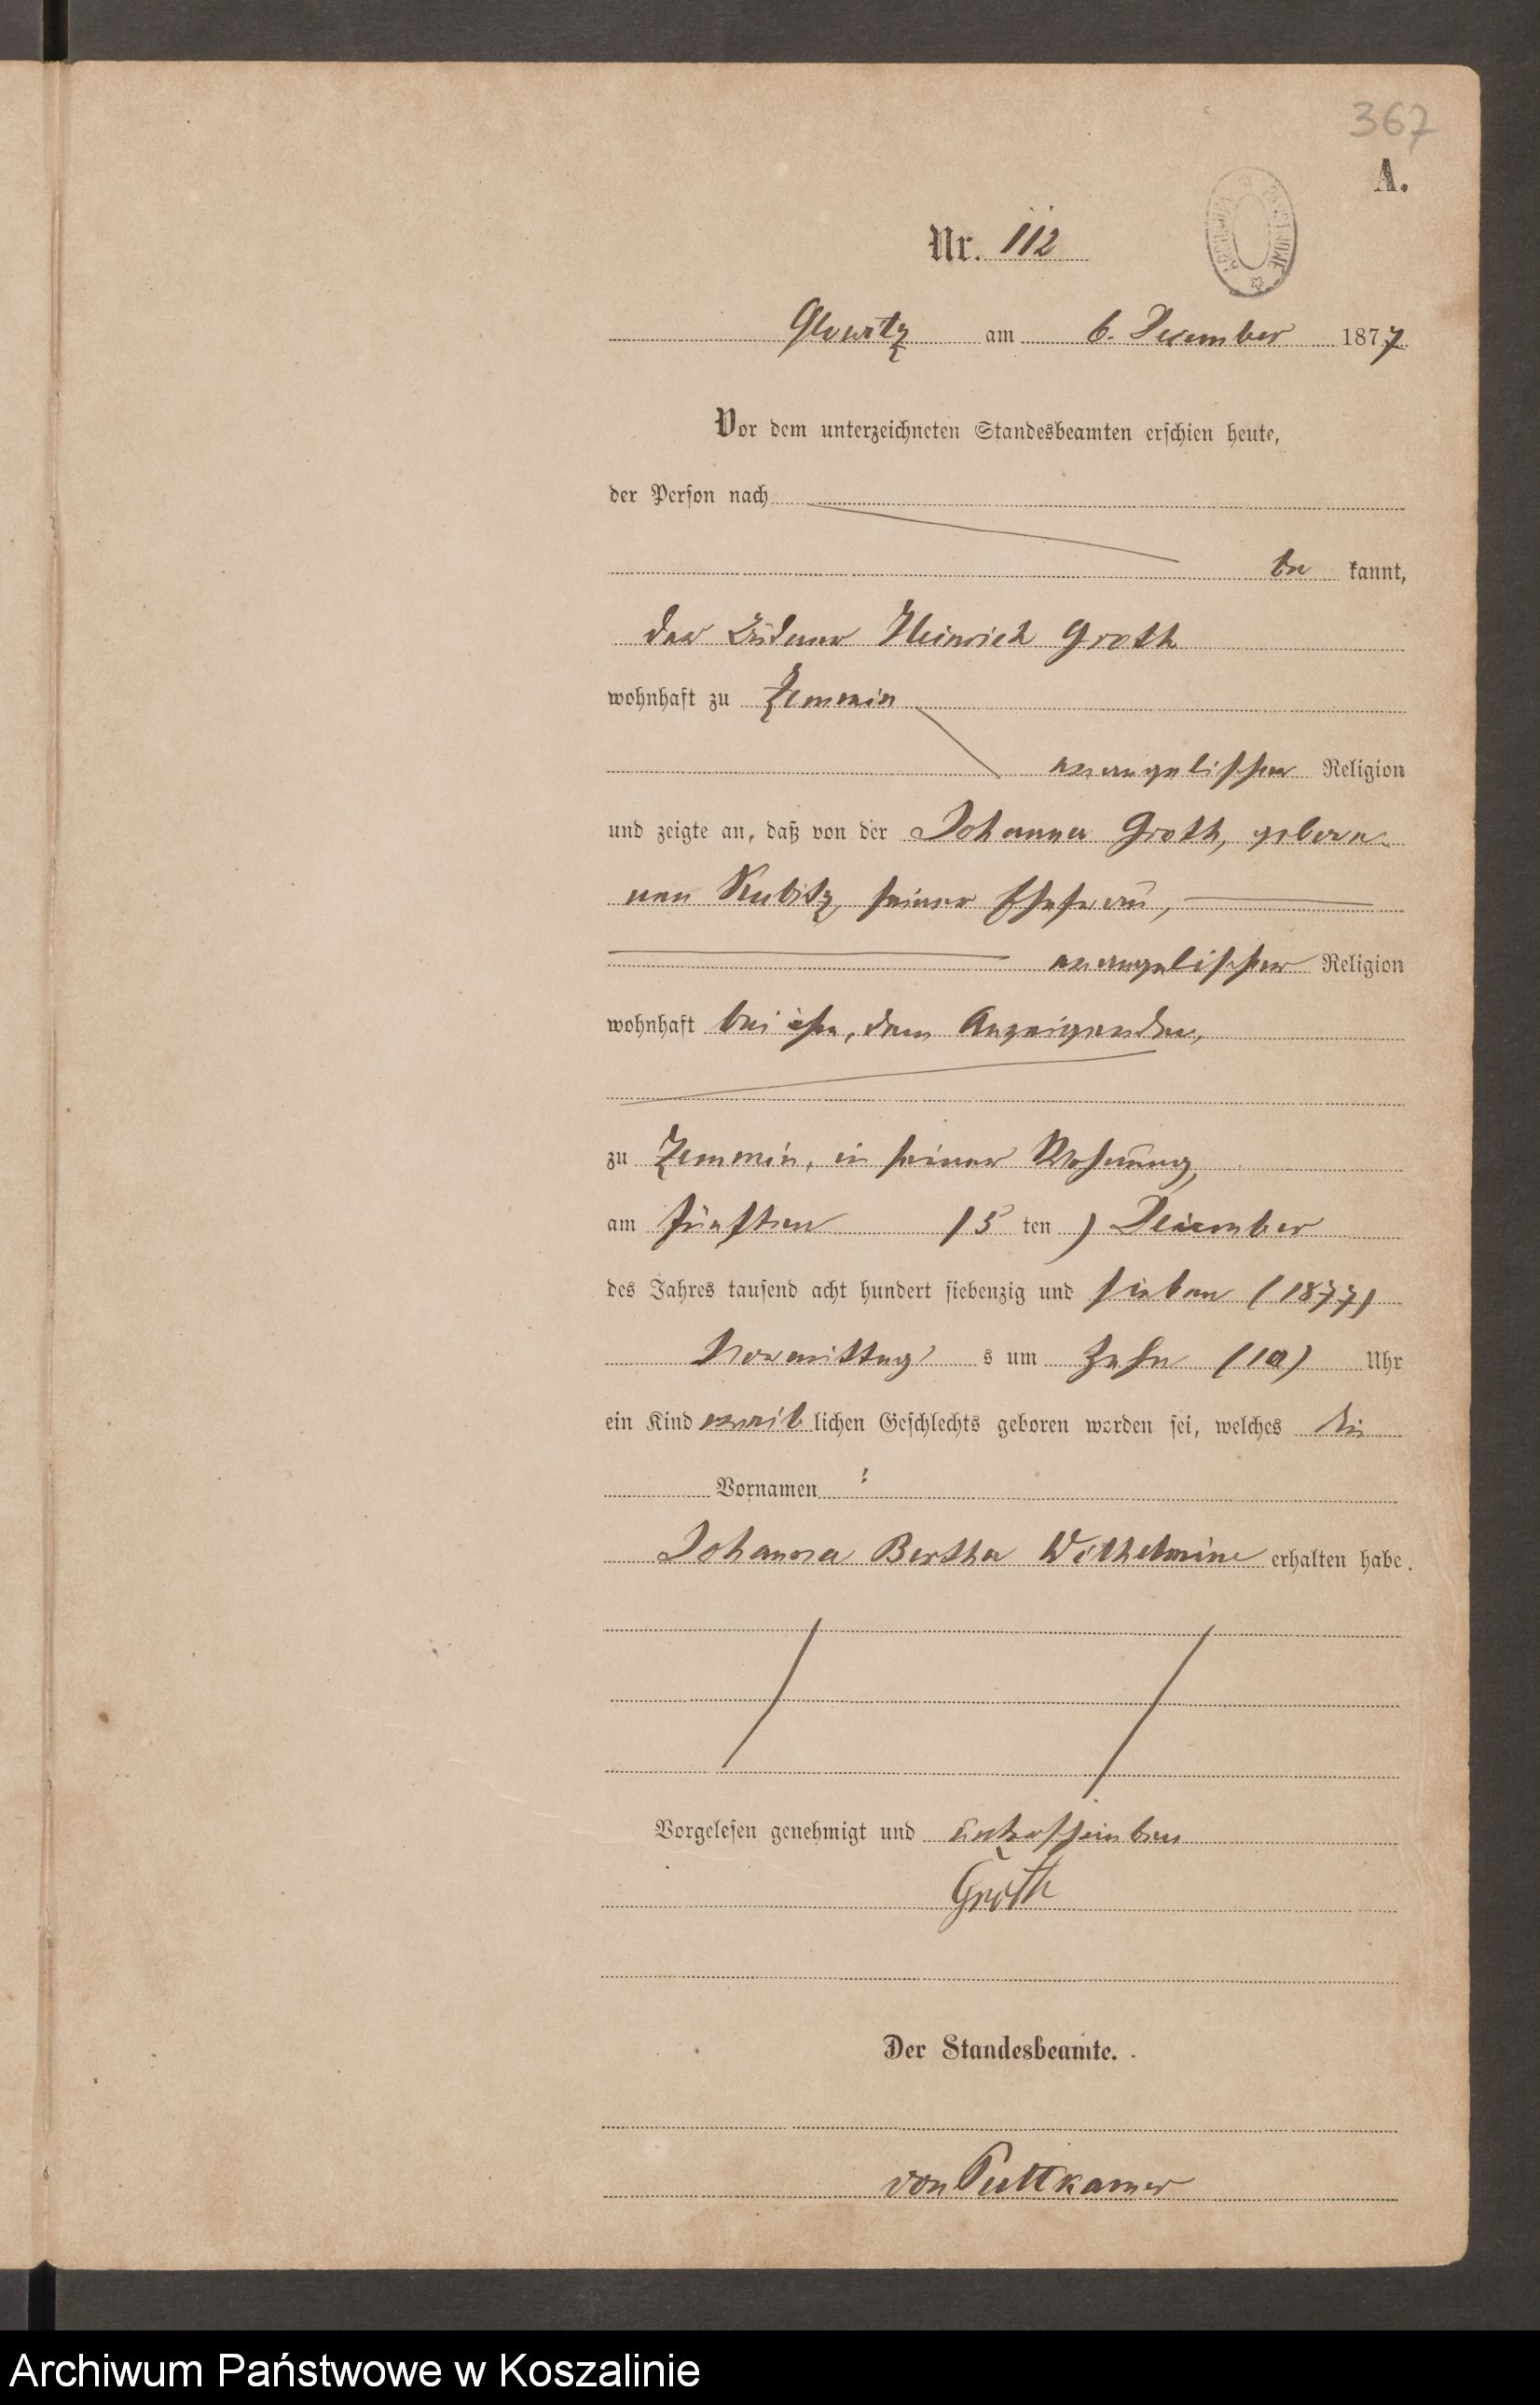 367
A.
Nr. 112
Glowitz am 6. December 1877
Vor dem unterzeichneten Standesbeamten erschien heute,
der Person nach
be kannt,
der Büdner Heinrich Groth
wohnhaft zu Zemmin
evangelischer Religion
und zeigte an, daß von der Johanna Groth, gebore-
nen Kubitz, seiner Ehefrau,
evangelischer Religion
wohnhaft bei ihm, dem Anzeigenden,
zu Zemmin, in seiner Wohnung,
am fünften (5 ten ) December
des Jahres tausend acht hundert siebenzig und sieben (1877)
Vormittag s um Zehn (10) Uhr
ein Kind weib lichen Geschlechts geboren worden sei, welches die
Vornamen :
Johanna Bertha Wilhelmine erhalten habe.
Vorgelesen genehmigt und unterschrieben
Groth
Der Standesbeamte.
von Puttkamer
Archiwum Państwowe w Koszalinie